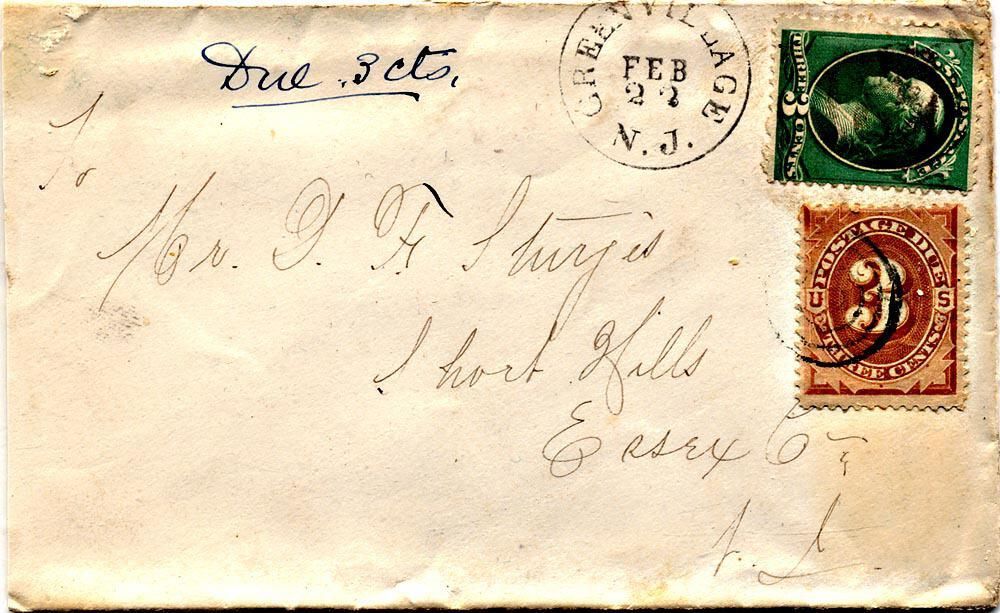 Due 3 cts.
GREEN VILLAGE
FEB
22
N. J.
THREE 3 CENTS
U.S. POSTAGE
To
Mr. D. F. Sturgis
Short Hills
Essex Co
N. J.
POSTAGE DUE
U S
3
THREE CENTS